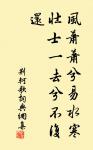 風蕭蕭兮易水寒
壯士一去兮不復
還
荆軻歌詞典網集